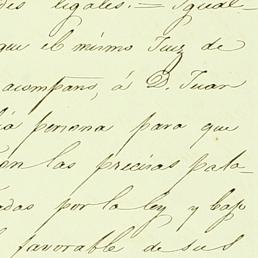 des legales. = Igual-
que el mismo Juez de
acompaño, á D. Juan
persona para que
con las precisas pala-
adas por la ley y bajo
favorable de sus